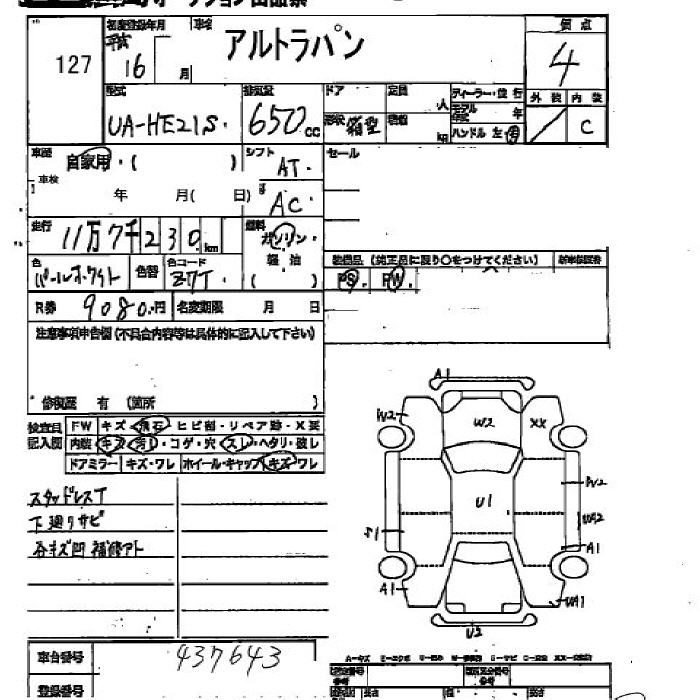 127
初度登録年月 車名
平成16 月 アルトラパン
評点 4
型式 UA-HE21S.
排気量 650cc
ドア 定員 人
形状 箱型 積載 kg
ディーラー・並行
モデル年式 年
ハンドル 左 右
外装 内装
C
車歴 自家用・( )
シフト AT.
車検 年 月( 日)
AC
セール
走行 11万7千230km
燃料 ガソリン・軽油( )
色 パールホワイト 色替 色コード Z7T.
装備品 (純正品に限り○をつけてください) 新車保証書
PS PW.
R券 9080.円 名変期限 月 日
注意事項申告欄(不具合内容等は具体的に記入して下さい)
修復歴 有 (箇所 )
検査員記入欄
FW キズ・飛石・ヒビ割・リペア跡・X要
内装 キズ・汚レ・コゲ・穴・スレ・ヘタリ・破レ
ドアミラー キズ・ワレ ホイール・キャップ キズ・ワレ
スタッドレスT
下廻りサビ
各キズ凹 補修アト
A1
W2 W2 XX
W2
U1
S1 WA2
A1
A1 WA1
U2
車台番号 437643
登録番号